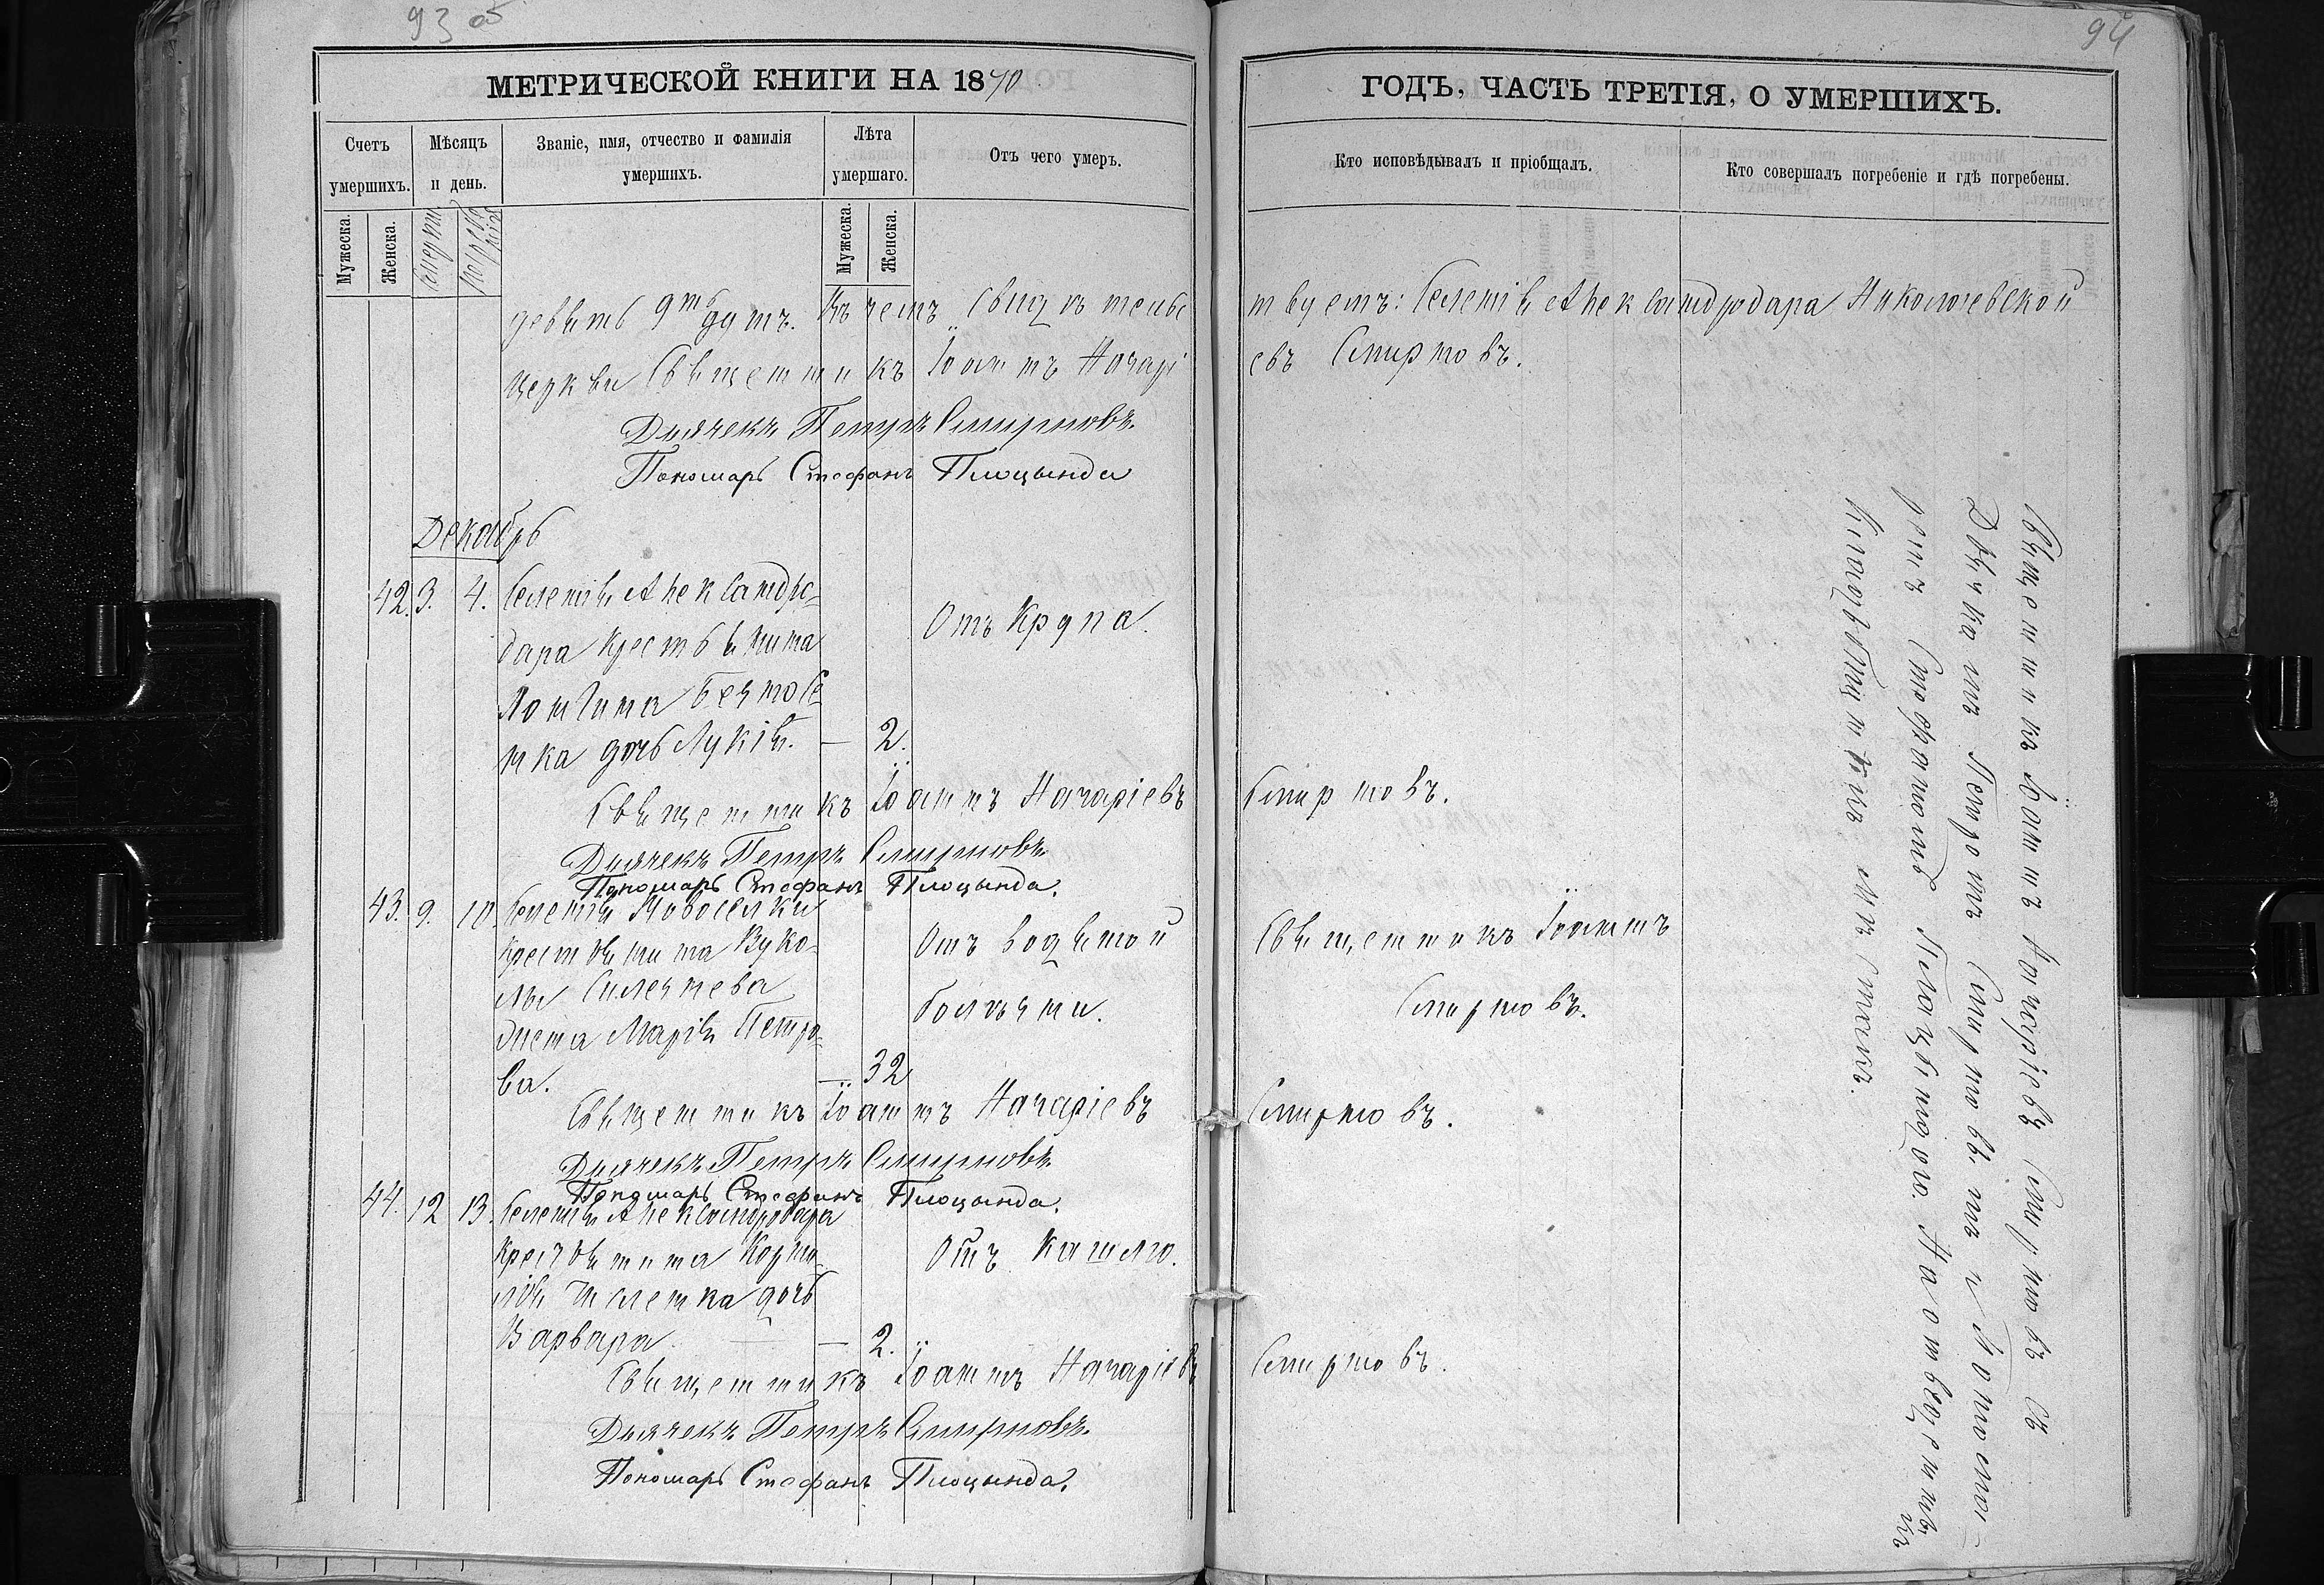 93 об
94
МЕТРИЧЕСКОЙ КНИГИ НА 1870
ГОДЪ, ЧАСТЬ ТРЕТІЯ, О УМЕРШИХЪ.
Счетъ умершихъ.
Мѣсяцъ и день.
Званіе, имя, отчество и фамилія умершихъ.
Лѣта умершаго.
Отъ чего умеръ.
Кто исповѣдывалъ и пріобщалъ.
Кто совершалъ погребеніе и гдѣ погребены.
Мужеска.
Женска.
смерти
погребенія
Мужеска.
Женска.
девять душъ. Въ чемъ свидѣтельствуетъ: Селенія Александродара Николаевской
Церкви Священникъ Іоаннъ Смирновъ.
Дьячекъ Петръ Смирновъ.
Пономарь Стефанъ Плоцында
Декабрь
42. 3. 4. Селенія Александро-
дара крестьянина
Отъ крупа.
дочь Лукія. — 2.
Священникъ Іоаннъ Смирновъ.
Дьячекъ Петръ Смирновъ
Пономарь Стефанъ Плоцында.
43. 9. 10. Селенія Новоселки
крестьянина Вуко-
Отъ водяной
Священникъ Іоаннъ
лы
болѣзни.
Смирновъ.
жена Марія Петро-
ва. — 32
Священникъ Іоаннъ Смирновъ.
Дьячекъ Петръ Смирновъ
Пономарь Стефанъ Плоцында.
44. 12 13. Селенія Александродара
крестьянина Корни-
Отъ кашлю.
лія дочь
Варвара — 2.
Священникъ Іоаннъ Смирновъ.
Дьячекъ Петръ Смирновъ.
Пономарь Стефанъ Плоцында.
Священникъ Іоаннъ Смирновъ съ
Дьячкомъ Петромъ Смирновымъ и Пономаремъ
Стефаномъ Плоцындою. На отведенномъ
кладбищѣ